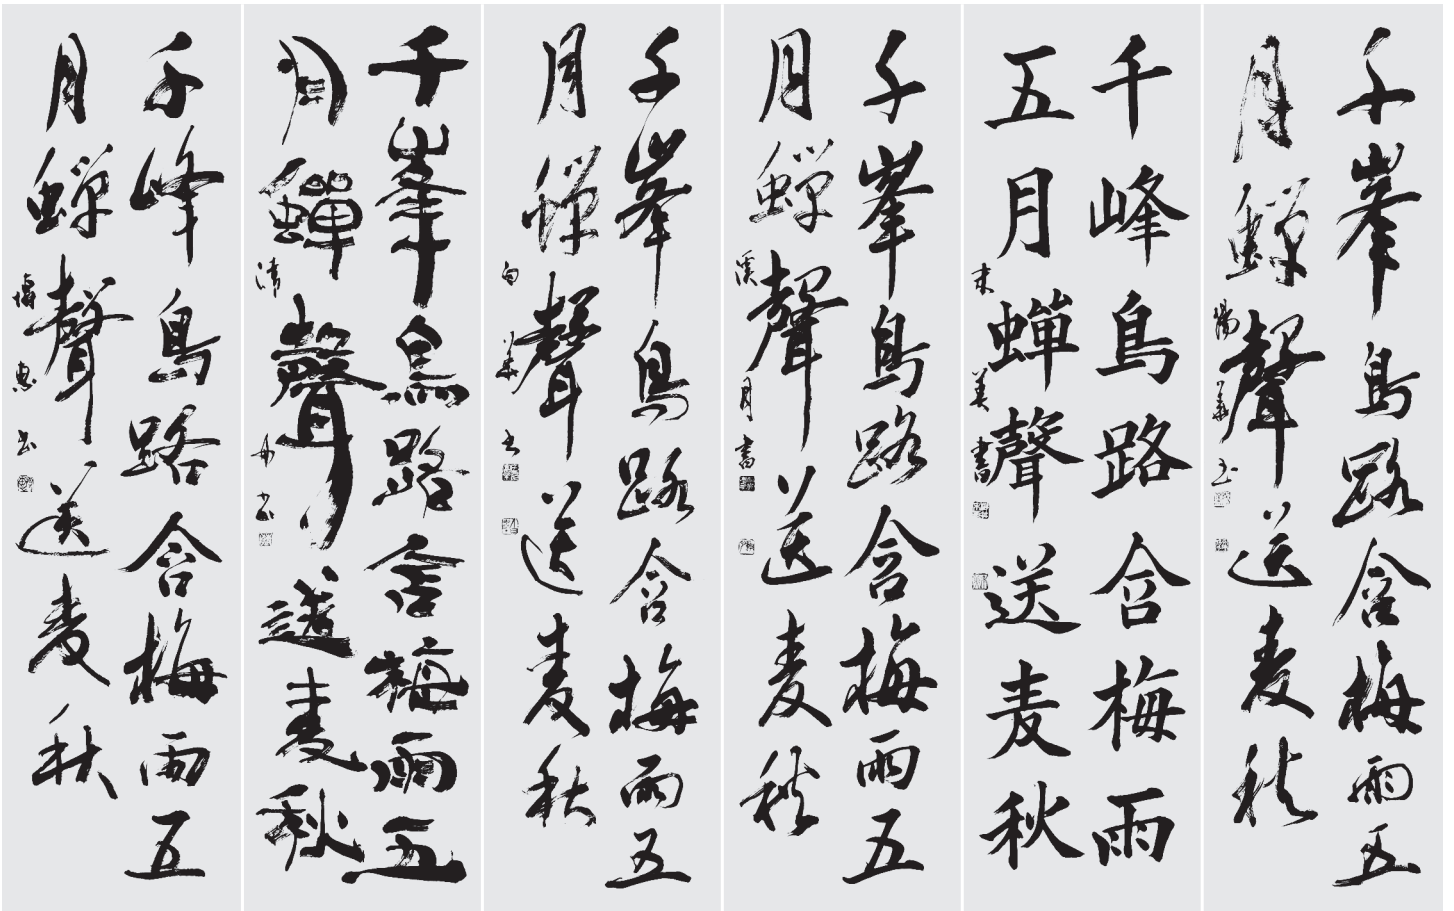 千峯鳥路含梅雨五
月蟬聲送麦秋
千峰鳥路含梅雨
五月蟬聲送麦秋
末美書
千峯鳥路含梅雨五
月蟬聲送麦秋
溪月書
千峯鳥路含梅雨五
月蟬聲送麦秋
千峯鳥路含梅雨五
月蟬聲送麦秋
千峰鳥路含梅雨五
月蟬聲送麦秋